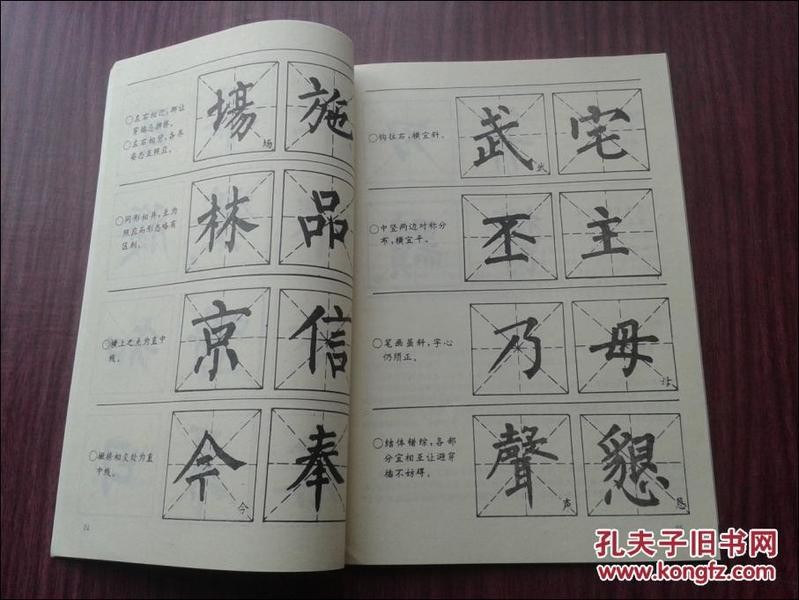 場 施
场
○左右相迎,即让
穿插忌拼挤。
○左右相背,各尽
姿态互照应。
林 品
○同形相并,互为
照应而形态略有
区别。
京 信
○横上之点为直中
线。
今 奉
今
○撇捺相交处为直
中线。
24
武 宅
武
○钩拉右,横宜斜。
丕 主
○中竖两边对称分
布,横宜平。
乃 母
○笔画虽斜,字心
仍须正。
聲 懇
声 恳
○结体错综,各部
分宜相互让避穿
插不妨碍。
孔夫子旧书网
www.kongfz.com